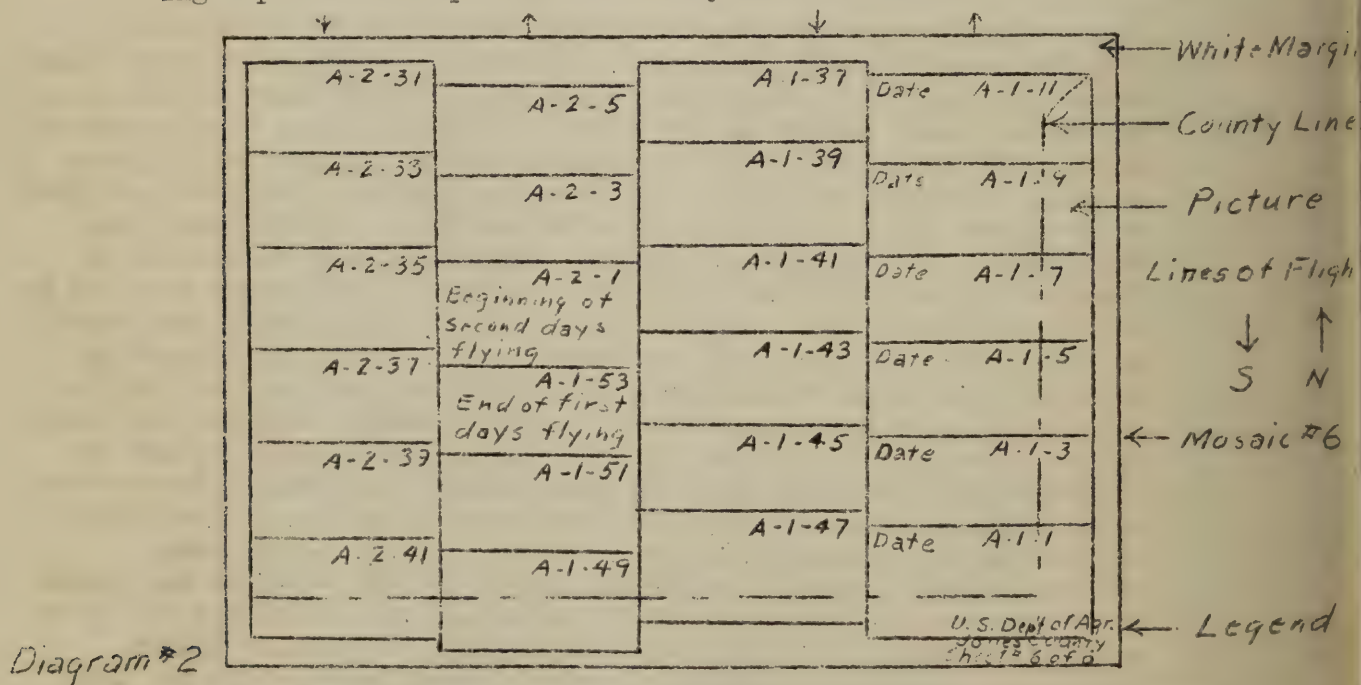 A-2-31
A-2-33
A-2-35
A-2-37
A-2-39
A-2-41
A-2-5
A-2-3
A-2-1
Beginning of
second days
flying
A-1-53
End of first
days flying
A-1-51
A-1-49
A-1-37
A-1-39
A-1-41
A-1-43
A-1-45
A-1-47
Date A-1-11
Date A-1-9
Date A-1-7
Date A-1-5
Date A-1-3
Date A-1-1
U. S. Dept of Agr.
Jones County
Sheet # 6 of 6
White Margin
County Line
Picture
Lines of Fligh
S N
Mosaic #6
Legend
Diagram #2